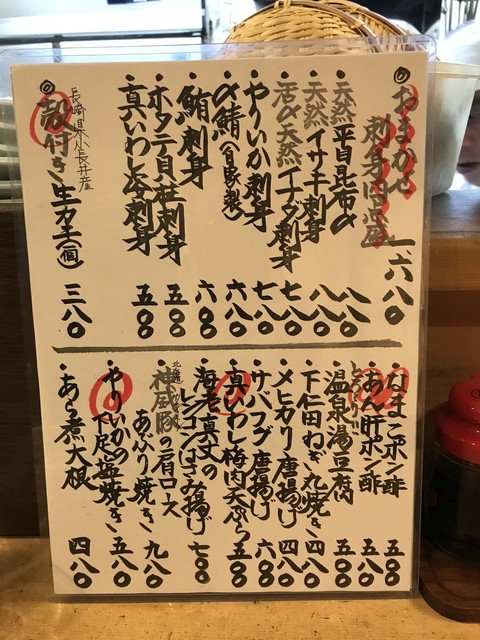 ◎おまかせ刺身四点盛 一、六八〇
・天然平目昆布〆 八八〇
・天然イサキ刺身 八八〇
・活〆天然イナダ刺身 七八〇
・やりいか刺身 七八〇
・〆鯖(自家製) 六八〇
・鮪刺身 六〇〇
・ホタテ貝柱刺身 五八〇
・真いわし刺身 五八〇
長崎県小長井産
◎殻付き生ガキ(1個) 三八〇
・なまこポン酢 五八〇
・あん肝ポン酢 五八〇
とろ〜り
・温泉湯豆腐 五〇〇
・下仁田ねぎ丸焼き 四八〇
・メヒカリ唐揚げ 四八〇
・サバフグ唐揚げ 六八〇
・真いわし梅肉天ぷら 五八〇
・海老真丈のレンコンはさみ揚げ 七〇〇
・神威豚の肩ロースあぶり焼き 九八〇
・やりいかの下足塩焼き 五八〇
・あら煮大根 四八〇